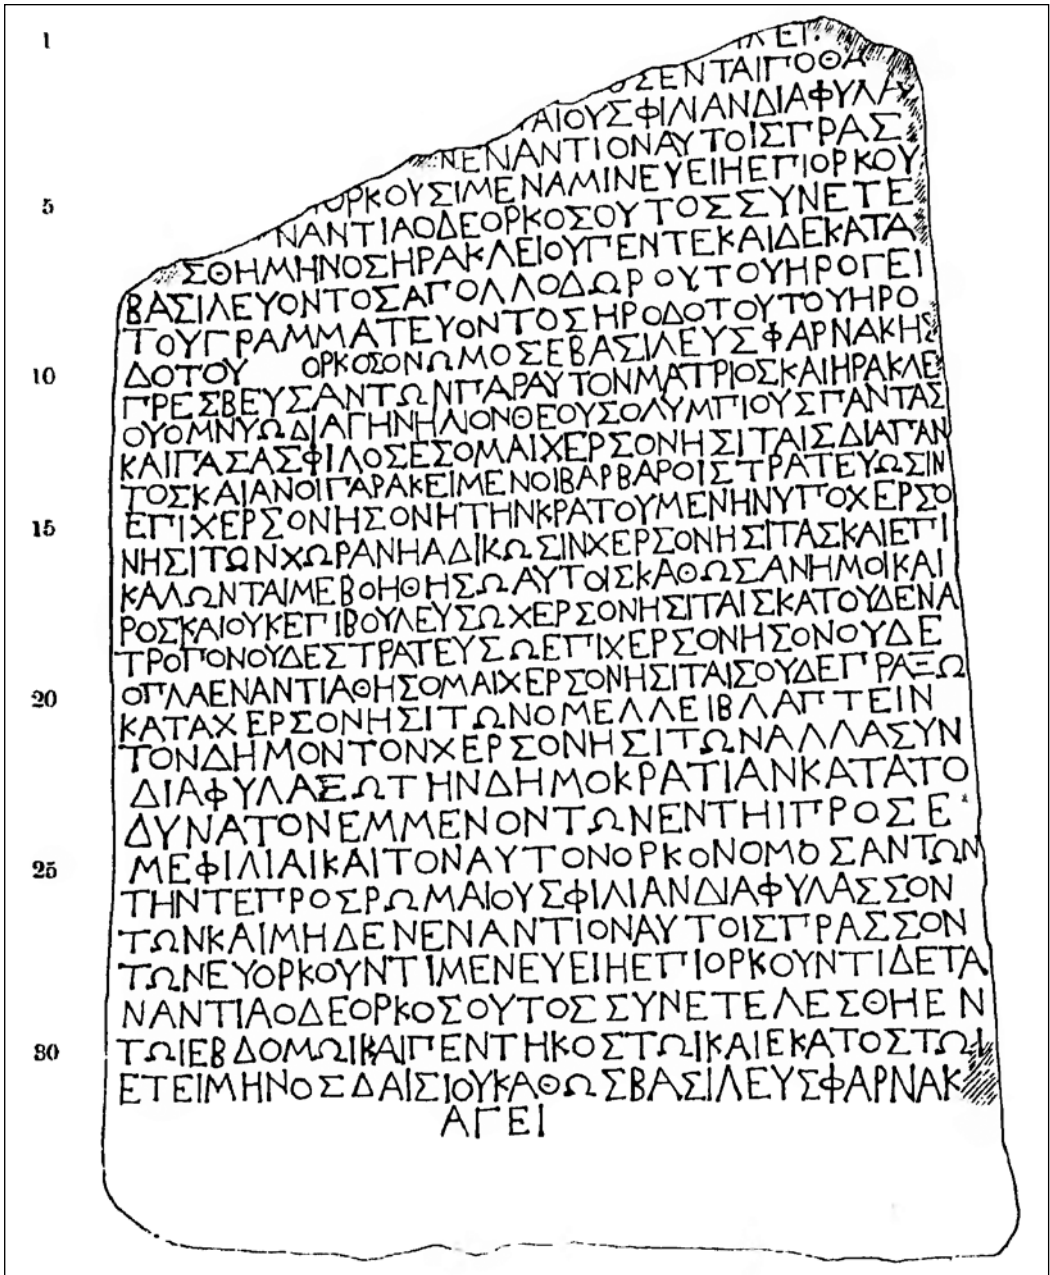 1 ΛΕΙ.
ΟΣΕΝΤΑΙΠΟΘΑ
ΑΙΟΥΣΦΙΛΙΑΝΔΙΑΦΥΛΑ
ΝΕΝΑΝΤΙΟΝΑΥΤΟΙΣΠΡΑΣ
5 ΟΡΚΟΥΣΙΜΕΝΑΜΙΝΕΥΕΙΗΕΠΙΟΡΚΟΥ
ΝΑΝΤΙΑΟΔΕΟΡΚΟΣΟΥΤΟΣΣΥΝΕΤΕ
ΣΘΗΜΗΝΟΣΗΡΑΚΛΕΙΟΥΠΕΝΤΕΚΑΙΔΕΚΑΤΑ
ΒΑΣΙΛΕΥΟΝΤΟΣΑΠΟΛΛΟΔΩΡΟΥΤΟΥΗΡΟΓΕΙ
ΤΟΥΓΡΑΜΜΑΤΕΥΟΝΤΟΣΗΡΟΔΟΤΟΥΤΟΥΗΡΟ
10 ΔΟΤΟΥ ΟΡΚΟΣΟΝΩΜΟΣΕΒΑΣΙΛΕΥΣΦΑΡΝΑΚΗΣ
ΠΡΕΣΒΕΥΣΑΝΤΩΝΠΑΡΑΥΤΟΝΜΑΤΡΙΟΣΚΑΙΗΡΑΚΛΕ
ΟΥΟΜΝΥΩΔΙΑΓΗΝΗΛΙΟΝΘΕΟΥΣΟΛΥΜΠΙΟΥΣΠΑΝΤΑΣ
ΚΑΙΠΑΣΑΣΦΙΛΟΣΕΣΟΜΑΙΧΕΡΣΟΝΗΣΙΤΑΙΣΔΙΑΠΑΝ
ΤΟΣΚΑΙΑΝΟΙΠΑΡΑΚΕΙΜΕΝΟΙΒΑΡΒΑΡΟΙΣΤΡΑΤΕΥΩΣΙΝ
15 ΕΠΙΧΕΡΣΟΝΗΣΟΝΗΤΗΝΚΡΑΤΟΥΜΕΝΗΝΥΠΟΧΕΡΣΟ
ΝΗΣΙΤΩΝΧΩΡΑΝΗΑΔΙΚΩΣΙΝΧΕΡΣΟΝΗΣΙΤΑΣΚΑΙΕΠΙ
ΚΑΛΩΝΤΑΙΜΕΒΟΗΘΗΣΩΑΥΤΟΙΣΚΑΘΩΣΑΝΗΜΟΙΚΑΙ
ΡΟΣΚΑΙΟΥΚΕΠΙΒΟΥΛΕΥΣΩΧΕΡΣΟΝΗΣΙΤΑΙΣΚΑΤΟΥΔΕΝΑ
ΤΡΟΠΟΝΟΥΔΕΣΤΡΑΤΕΥΣΩΕΠΙΧΕΡΣΟΝΗΣΟΝΟΥΔΕ
20 ΟΠΛΑΕΝΑΝΤΙΑΘΗΣΟΜΑΙΧΕΡΣΟΝΗΣΙΤΑΙΣΟΥΔΕΠΡΑΞΩ
ΚΑΤΑΧΕΡΣΟΝΗΣΙΤΩΝΟΜΕΛΛΕΙΒΛΑΠΤΕΙΝ
ΤΟΝΔΗΜΟΝΤΟΝΧΕΡΣΟΝΗΣΙΤΩΝΑΛΛΑΣΥΝ
ΔΙΑΦΥΛΑΞΩΤΗΝΔΗΜΟΚΡΑΤΙΑΝΚΑΤΑΤΟ
ΔΥΝΑΤΟΝΕΜΜΕΝΟΝΤΩΝΕΝΤΗΙΠΡΟΣΕ
25 ΜΕΦΙΛΙΑΙΚΑΙΤΟΝΑΥΤΟΝΟΡΚΟΝΟΜΟΣΑΝΤΩΝ
ΤΗΝΤΕΠΡΟΣΡΩΜΑΙΟΥΣΦΙΛΙΑΝΔΙΑΦΥΛΑΣΣΟΝ
ΤΩΝΚΑΙΜΗΔΕΝΕΝΑΝΤΙΟΝΑΥΤΟΙΣΠΡΑΣΣΟΝ
ΤΩΝΕΥΟΡΚΟΥΝΤΙΜΕΝΕΥΕΙΗΕΠΙΟΡΚΟΥΝΤΙΔΕΤΑ
ΝΑΝΤΙΑΟΔΕΟΡΚΟΣΟΥΤΟΣΣΥΝΕΤΕΛΕΣΘΗΕΝ
30 ΤΩΙΕΒΔΟΜΩΙΚΑΙΠΕΝΤΗΚΟΣΤΩΙΚΑΙΕΚΑΤΟΣΤΩΙ
ΕΤΕΙΜΗΝΟΣΔΑΙΣΙΟΥΚΑΘΩΣΒΑΣΙΛΕΥΣΦΑΡΝΑΚ
ΑΓΕΙ